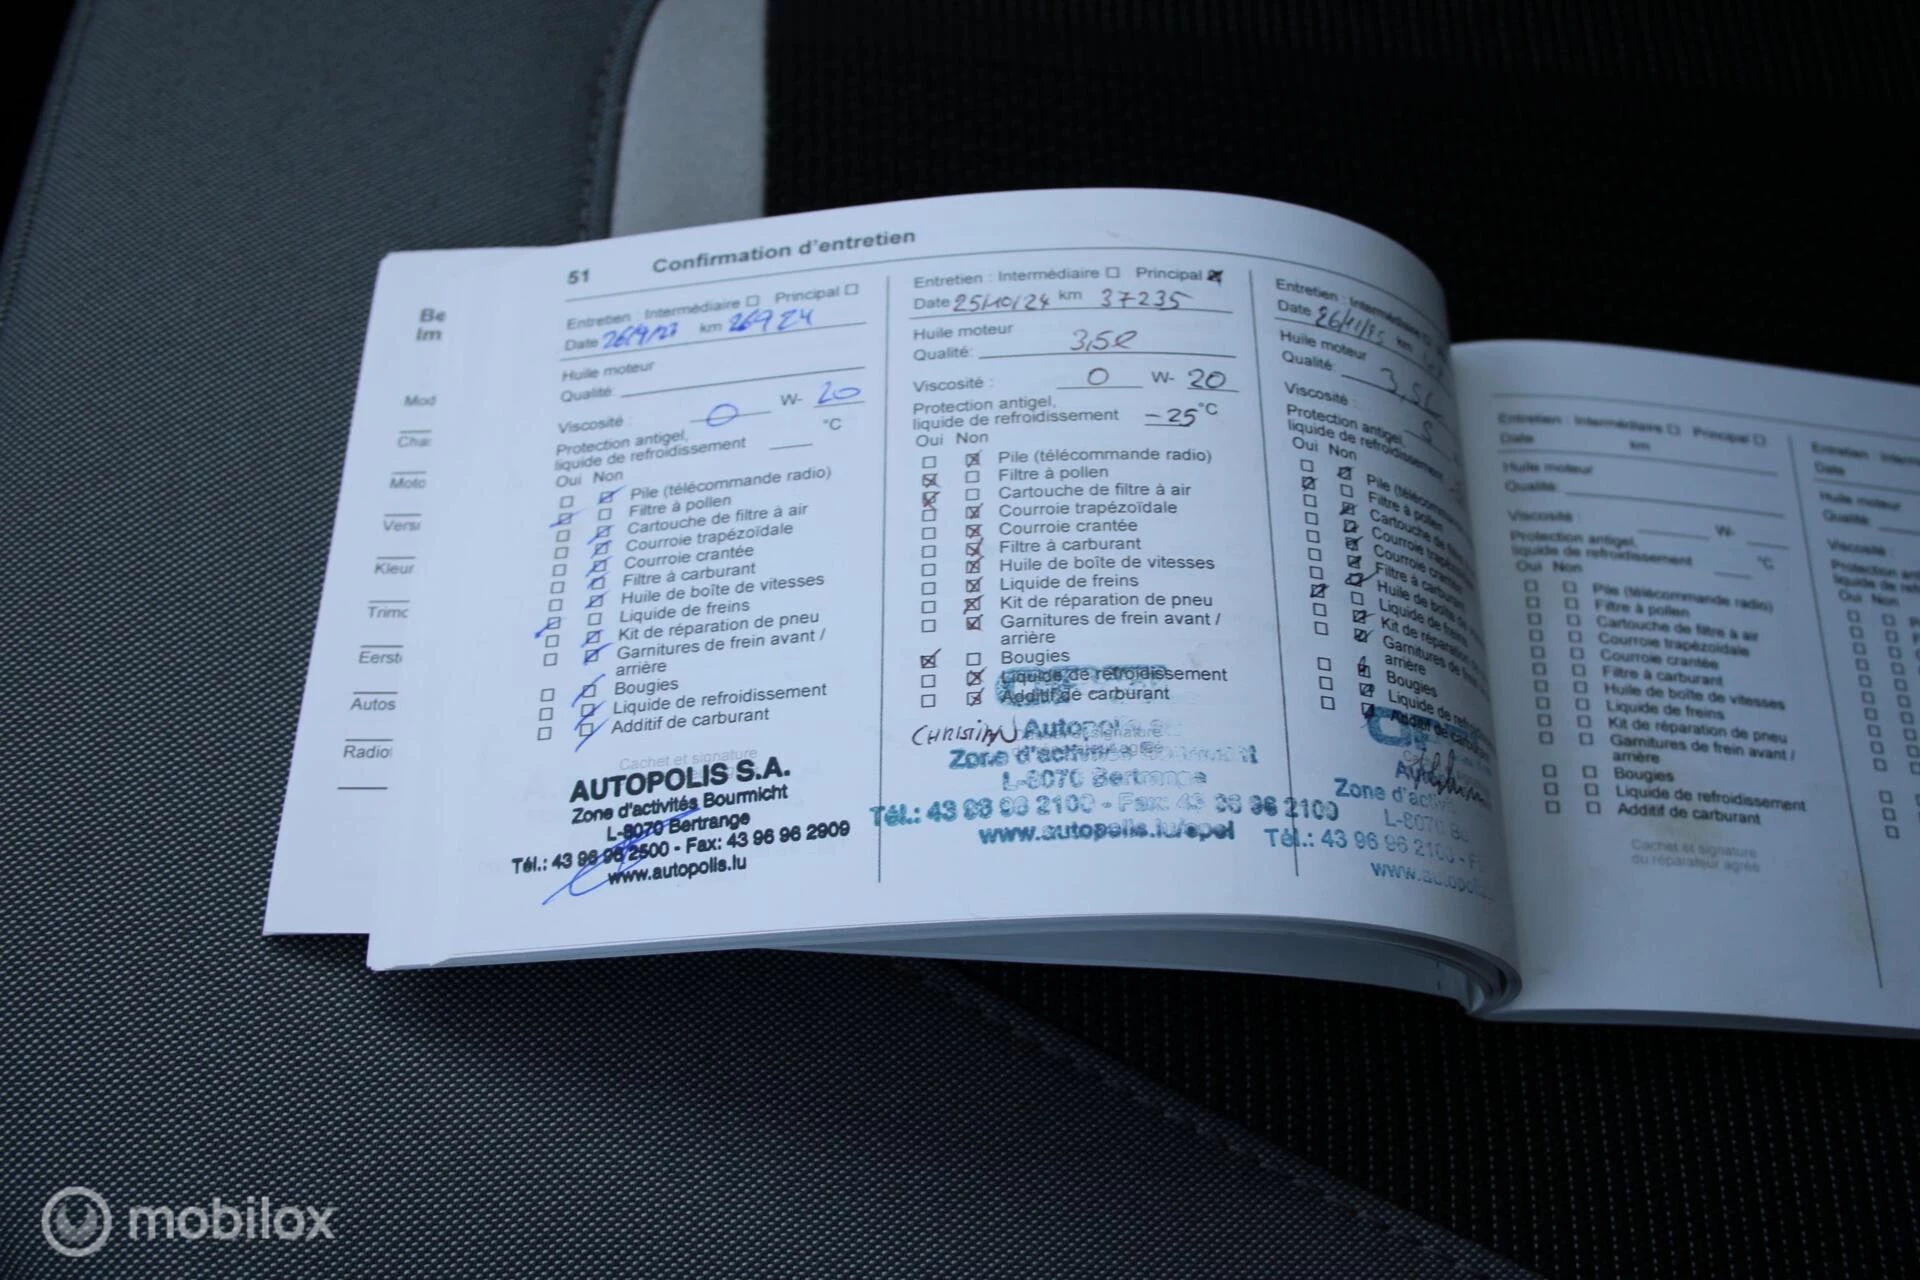 51 Confirmation d'entretien
Be
Im
Mod
Moto
Versi
Kleur
Trimc
Eerst
Autos
Radio
Entretien : Intermédiaire Principal
Date 26/9/23 km 26924
Huile moteur
Qualité:
Viscosité : 0 W- 20
Protection antigel,
liquide de refroidissement °C
Oui Non
Pile (télécommande radio)
Filtre à pollen
Cartouche de filtre à air
Courroie trapézoïdale
Courroie crantée
Filtre à carburant
Huile de boîte de vitesses
Liquide de freins
Kit de réparation de pneu
Garnitures de frein avant /
arrière
Bougies
Liquide de refroidissement
Additif de carburant
Cachet et signature
AUTOPOLIS S.A.
Zone d'activités Bourmicht
L-8070 Bertrange
Tél.: 43 96 96 2500 - Fax: 43 96 96 2909
www.autopolis.lu
Entretien : Intermédiaire Principal
Date 25/10/24 km 37235
Huile moteur
Qualité: 3,5l
Viscosité : 0 W- 20
Protection antigel,
liquide de refroidissement -25 °C
Oui Non
Pile (télécommande radio)
Filtre à pollen
Cartouche de filtre à air
Courroie trapézoïdale
Courroie crantée
Filtre à carburant
Huile de boîte de vitesses
Liquide de freins
Kit de réparation de pneu
Garnitures de frein avant /
arrière
Bougies
Liquide de refroidissement
Additif de carburant
CHRISTIAN
Autopolis
Zone d'activités Bourmicht
L-8070 Bertrange
Tél.: 43 96 96 2100 - Fax: 43 96 96 2109
www.autopolis.lu/opel
Entretien : Intermédiaire
Date 26/11/25 km
Huile moteur
Qualité: 3,5l
Viscosité :
Protection antigel,
liquide de refroidissement
Oui Non
Pile (télécommande
Filtre à pollen
Cartouche de filtre
Courroie
Courroie crantée
Filtre à carburant
Huile de boîte
Liquide de freins
Kit de réparation
Garnitures de frein
arrière
Bougies
Liquide de
Additif de carburant
Zone d'activ
L-8070
Tél.: 43 96 96 2100 - F
www.autopolis
Entretien : Intermédiaire Principal
Date km
Huile moteur
Qualité:
Viscosité : W-
Protection antigel,
liquide de refroidissement °C
Oui Non
Pile (télécommande radio)
Filtre à pollen
Cartouche de filtre à air
Courroie trapézoïdale
Courroie crantée
Filtre à carburant
Huile de boîte de vitesses
Liquide de freins
Kit de réparation de pneu
Garnitures de frein avant /
arrière
Bougies
Liquide de refroidissement
Additif de carburant
Cachet et signature
du réparateur agréé
Entretien
Date
Huile moteur
Qualité:
Viscosité :
Protection
liquide de
Oui Non
mobilox